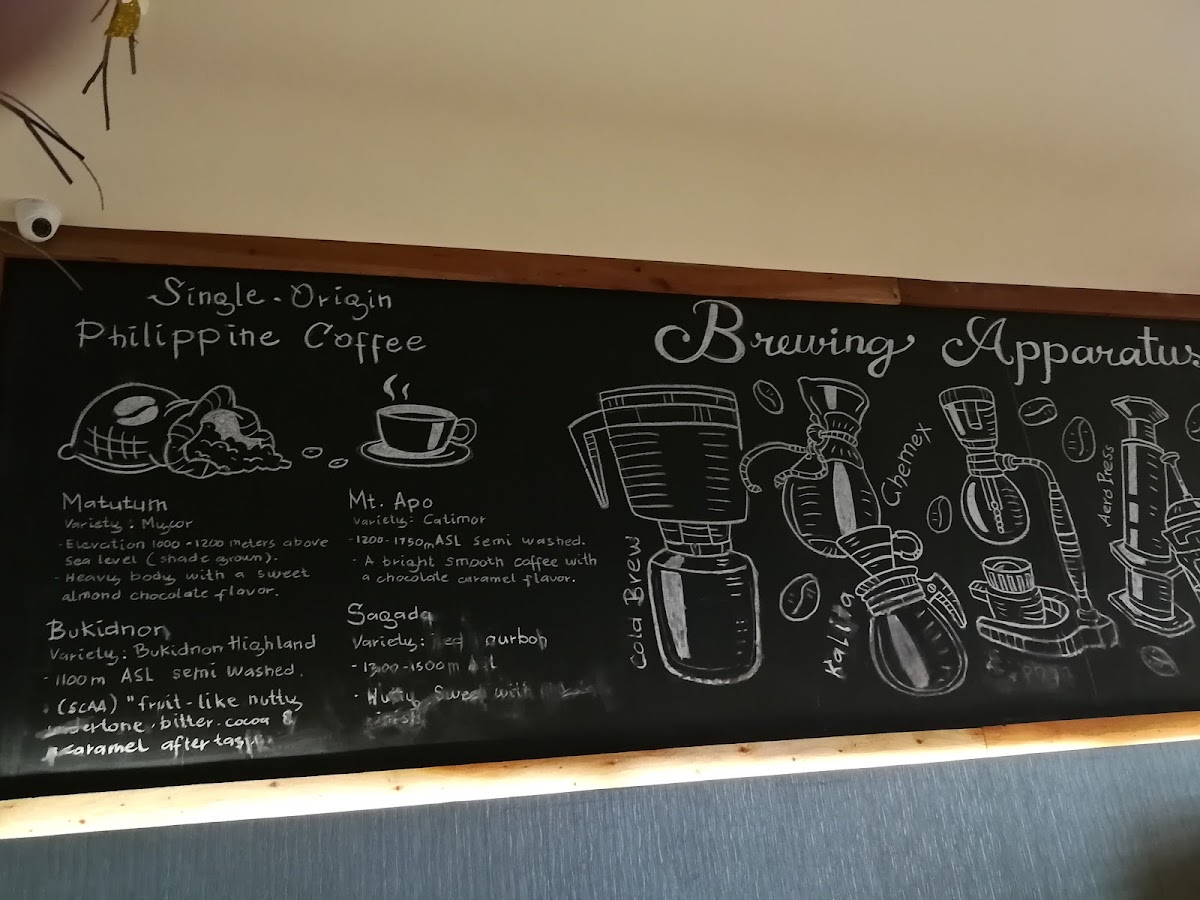 Single-Origin
Philippine Coffee
Matutum
Variety: Mycor
- Elevation 1000-1200 meters above
sea level (shade grown).
- Heavy body with a sweet
almond chocolate flavor.
Bukidnon
Variety: Bukidnon Highland
- 1100m ASL semi washed.
- (SCAA) "fruit-like nutty
bitter. cocoa &
caramel
Mt. Apo
Variety: Catimor
- 1200-1750m ASL semi washed.
- A bright smooth coffee with
a chocolate caramel flavor.
Sagada
Variety:
- 1300-1500m
- Nutty Sweet with
Brewing Apparatus
Cold Brew
Chemex
Kalita
Aero Press